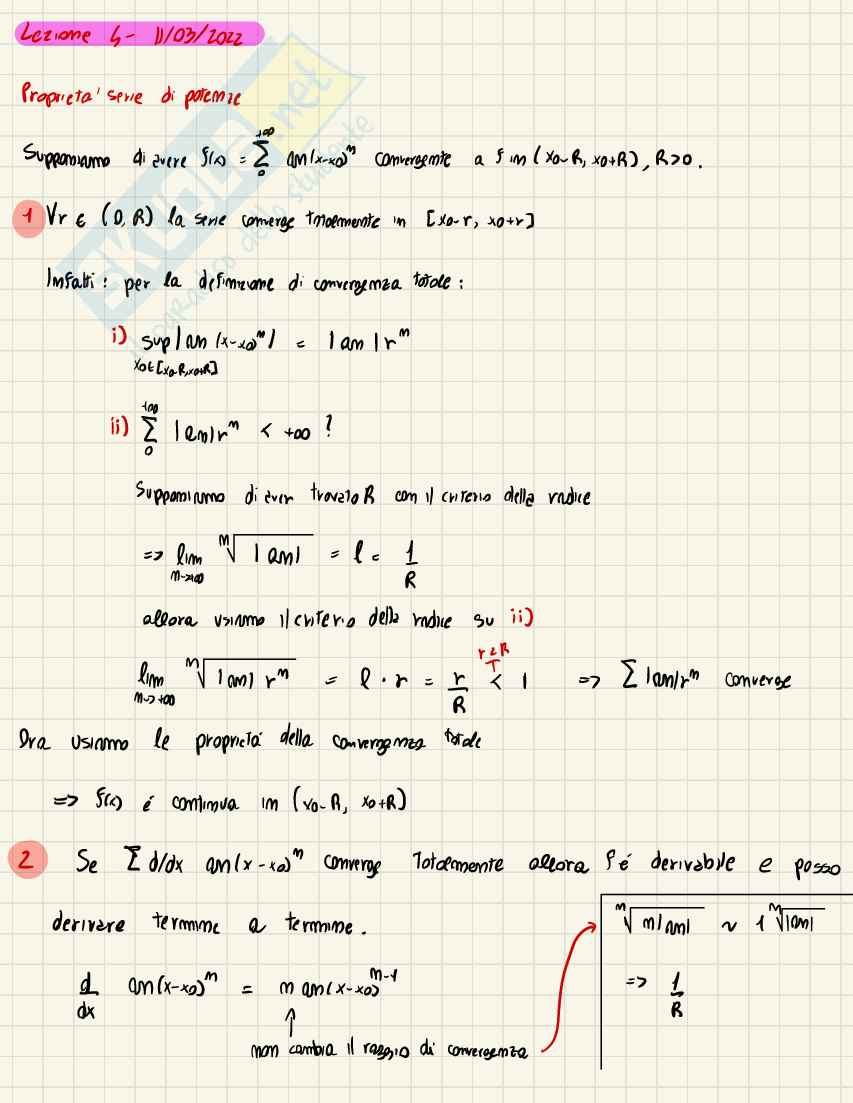 Lezione 4 - 11/03/2022
Proprietà serie di potenze
Supponiamo di avere f(x) = Σ_0^{+∞} an(x-x0)^n convergente a f in (x0-R, x0+R), R>0.
1 ∀r ∈ (0,R) la serie converge totalmente in [x0-r, x0+r]
Infatti: per la definizione di convergenza totale:
i) sup|an(x-x0)^n| = |an|r^n
x0∈[x0-R,x0+R]
ii) Σ_0^{+∞} |an|r^n < +∞ ?
Supponiamo di aver trovato R con il criterio della radice
=> lim_{n->+∞} ⁿ√|an| = l = 1/R
allora usiamo il criterio della radice su ii)
r<R
lim_{n->+∞} ⁿ√|an| r^n = l · r = r/R < 1 => Σ|an|r^n converge
Ora usiamo le proprietà della convergenza totale
=> f(x) é continua in (x0-R, x0+R)
2 Se Σ d/dx an(x-x0)^n converge Totalmente allora f é derivabile e posso
derivare termine a termine.
ⁿ√n|an| ~ 1 ⁿ√|an|
d/dx an(x-x0)^n = n an(x-x0)^{n-1}
=> 1/R
non cambia il raggio di convergenza
SKUOLA.net
il paradiso dello studente